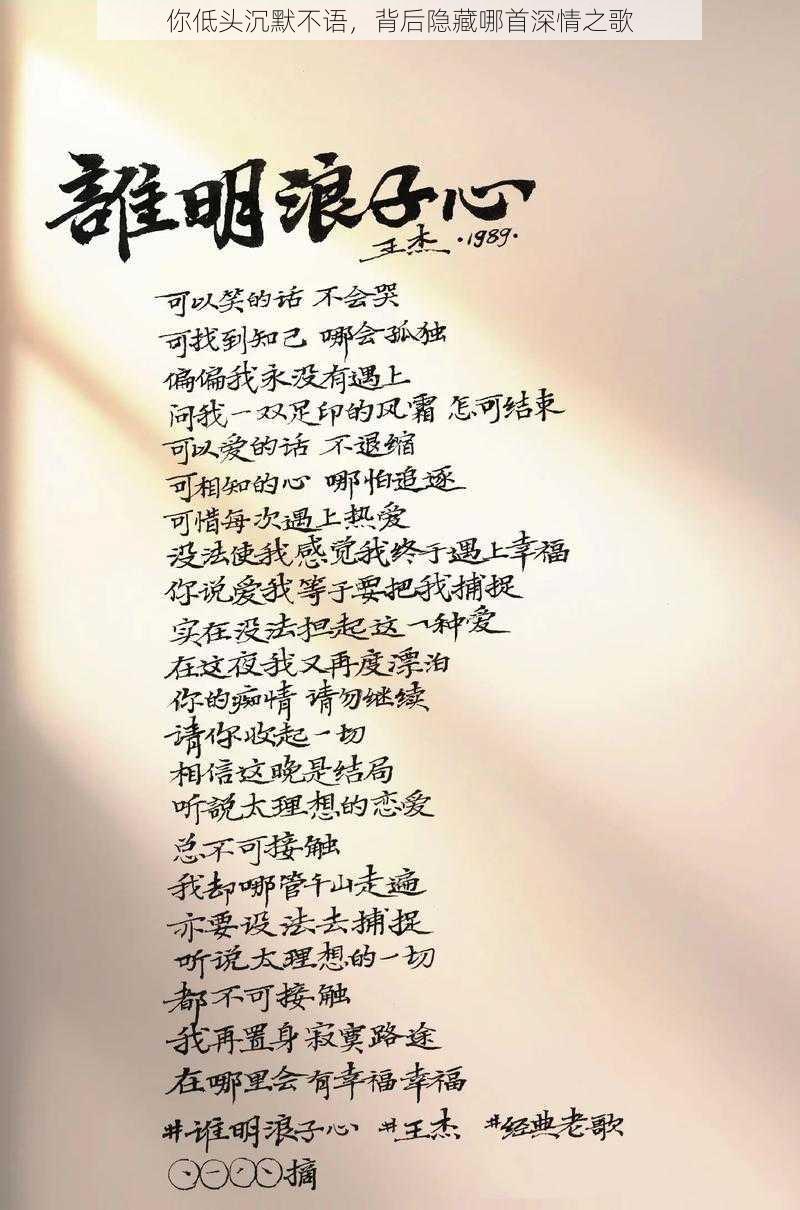 你低头沉默不语，背后隐藏哪首深情之歌
誰明浪子心
王杰·1989·
可以笑的话 不会哭
可找到知己 哪会孤独
偏偏我永没有遇上
问我一双足印的风霜 怎可结束
可以爱的话 不退缩
可相知的心 哪怕追逐
可惜每次遇上热爱
没法使我感觉我终于遇上幸福
你说爱我等于要把我捕捉
实在没法担起这一种爱
在这夜我又再度漂泊
你的痴情 请勿继续
请你收起一切
相信这晚是结局
听説太理想的恋爱
总不可接触
我却哪管千山走遍
亦要设法去捕捉
听说太理想的一切
都不可接触
我再置身寂寞路途
在哪里会有幸福幸福
#谁明浪子心 #王杰 #经典老歌
摘